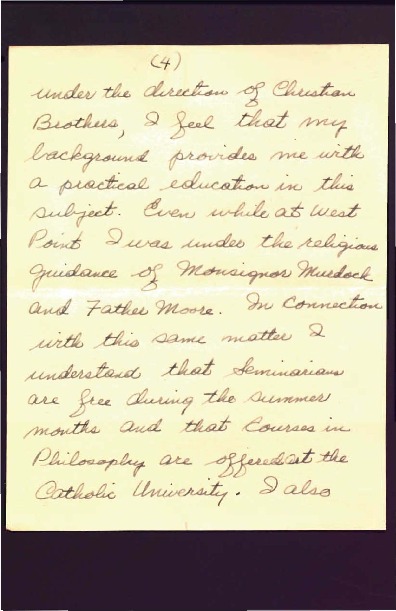 (4)
under the direction of Christian
Brothers, I feel that my
background provides me with
a practical education in this
subject. Even while at West
Point I was under the religious
guidance of Monsignor Murdock
and Father Moore. In connection
with this same matter I
understand that Seminarians
are free during the summer
months and that Courses in
Philosophy are offered at the
Catholic University. I also